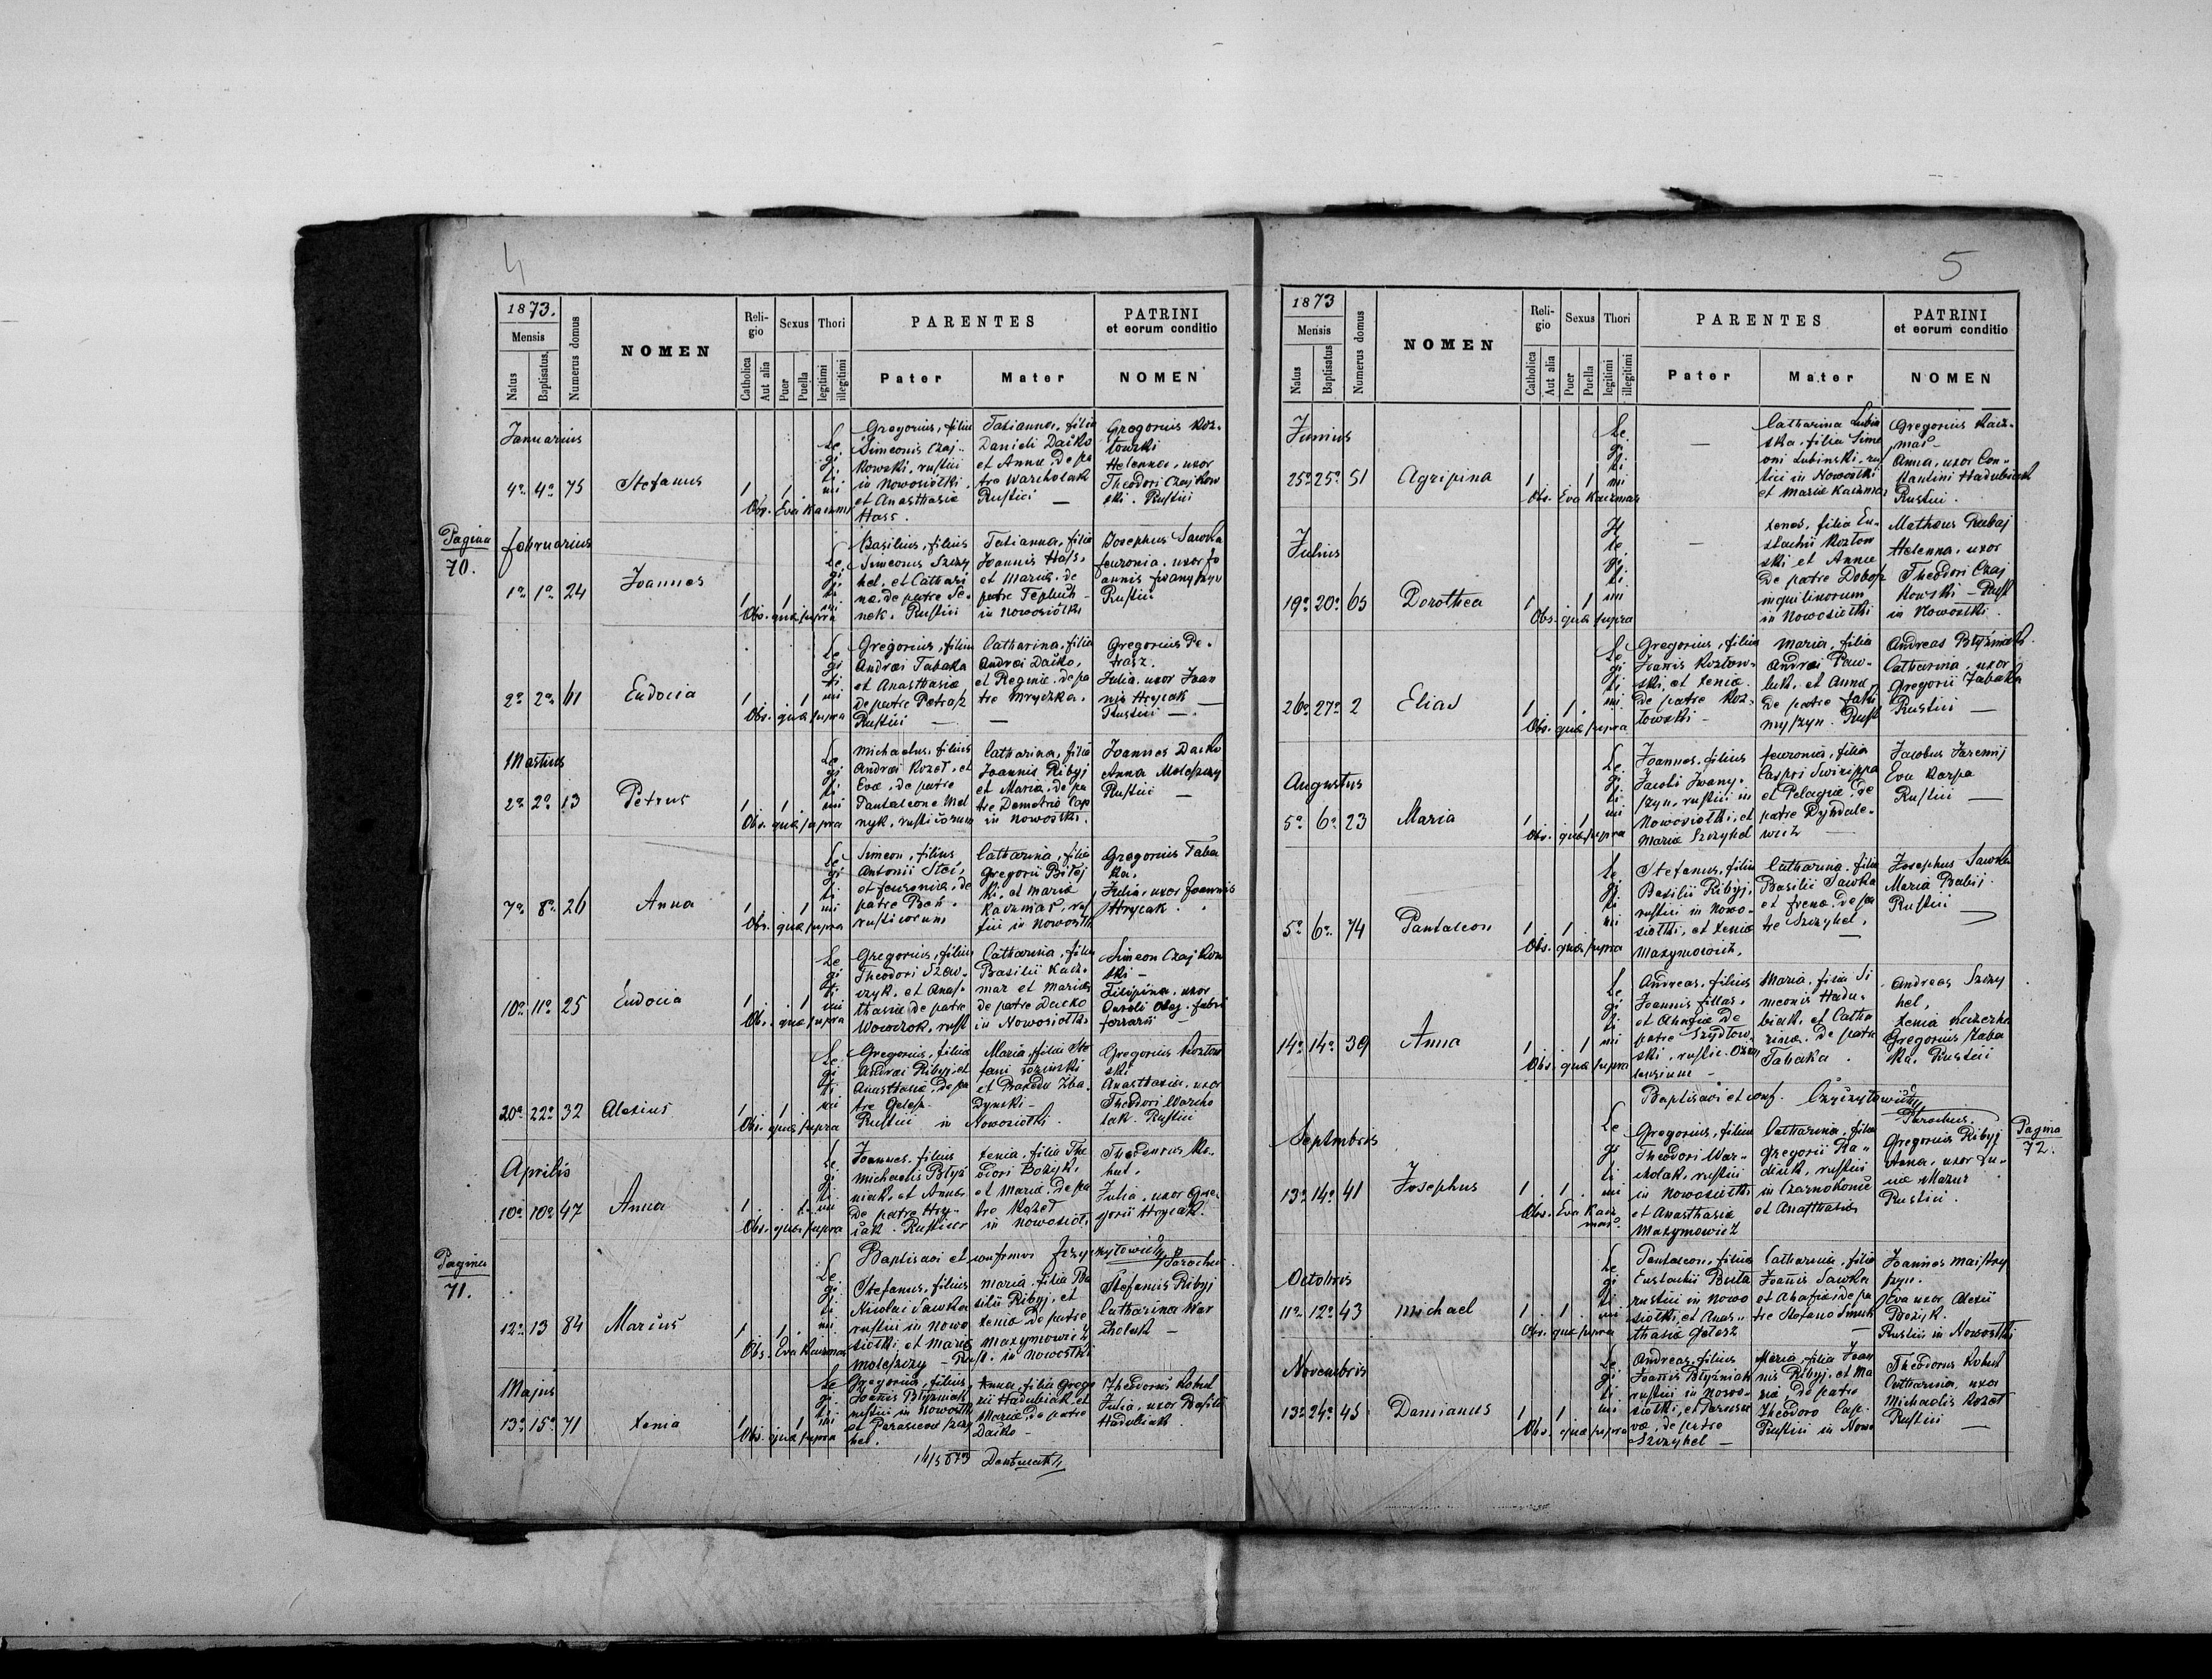 4
1873.
Mensis
Natus
Baptisatus
Numerus domus
NOMEN
Reli-
gio
Catholica
Aut alia
Sexus
Puer
Puella
Thori
legitimi
illegitimi
PARENTES
Pater
Mater
PATRINI
et eorum conditio
NOMEN
Januarius
4a 4a 75
Stefanus
1 1
Le
gi
ti
mi
Obs. Eva Kaczmar
Gregorius, filius
Simeonis Czaj-
kowski, rustici
in Nowosiołki
et Anasthasiæ
Hass.
Tatianna, filia
Danieli Daćko
et Annæ, de pa
tre Warcholak
Rustici —
Gregorius Koz-
łowski
Helenna, uxor
Theodori Czajkow
ski. Rustici
Pagina
70.
februarius
1a 1a 24
Joannes
1 1
Le
gi
ti
mi
Obs. quæ supra
Basilius, filius
Simeonis Szczy
hel, et Cathari
na. de patre Se-
nek. Rustici
Tatianna, filia
Joannis Hass,
et Mariæ. de
patre Tepluch-
in Nowosiołki
Josephus Sawka
feuronia, uxor Jo
annis Jwanyszyn
Rustici
2a 2a 61
Eudocia
1 1
Le
gi
ti
mi
Obs. quæ supra
Gregorius, filius
Andrei Tabaka
et Anasthasiæ
de patre Petrasz
Rustici —
Catharina, filia
Andrei Daćko,
et Reginæ. de pa
tre Mryczka.
—
Gregorius Pe-
trasz.
Julia. uxor Joan
nis Hrycak
Rustici —
Martius
2a 2a 13
Petrus
1 1
Le
gi
ti
mi
Obs. quæ supra
Michaelus, filius
Andrei Kozeł, et
Evæ, de patre
Pantaleone Mel
nyk, rusticorum
Catharina, filia
Joannis Ribyj
et Maria, de pa
tre Demetrio Cap
in Nowosiołki.
Joannes Dacko
Anna Moleszczy
Rustici —
7a 8a 26
Anna
1 1
Le
gi
ti
mi
Obs. quæ supra
Simeon, filius
Antonii Steć,
et feuroniæ, de
patre Bań.
rusticorum
Catharina, filia
Gregorii Biłój
ki, et Mariæ
Kaczmar, rus
tici in Nowosiołki
Gregorius Taba
ka,
Julia, uxor Joannis
Hrycak.
10a 11a 25
Eudocia
1 1
Le
gi
ti
mi
Obs. quæ supra
Gregorius, filius
Theodori Szew-
czyk, et Anas-
thasiæ de patre
Wowczok, rust
Catharina, filia
Basilii Kacz-
mar et Mariæ
de patre Dacko
in Nowosiołki
Simeon Czajkow
ski —
Filipina, uxor
Caroli Obej. fabri
ferrarii —
20a 22a 32
Alexius
1 1
Le
gi
ti
mi
Obs. quæ supra
Gregorius, filius
Andrei Ribyj, et
Anasthasiæ, de pa
tre Gelesz.
Rustici in
Maria, filia Ste
fani Łozinski
et Paxedæ Zba-
dynski —
Nowosiołki.
Gregorius Kozłow
ski
Anasthasia, uxor
Theodori Warcho
lak. Rustici
Aprilis
10a 10a 47
Anna
1 1
Le
gi
ti
mi
Obs. quæ supra
Joannes, filius
Michaelis Błyź
niak, et Annæ
de patre Hry-
cak. Rustici
Xenia, filia The
odori Bożyk,
et Maria, de pa
tre Kozeł
in Nowosioł
Theodorus Ko-
hut,
Julia, uxor Gre-
gorii Hrycak.
Baptisavi et confirmavi
Parochus
Pagina
71.
12a 13 84
Marcus
1 1
Le
gi
ti
mi
Obs. Eva Kaczmar
Stefanus, filius
Nicolai Sawka
rustici in Nowo
siołki, et Mariæ
Moleszczy — Rust. in Nowosiołki
Maria, filia Ba
silii Ribyj, et
Xeniæ de patre
Maxymowicz
Stefanus Ribyj
Catharina War
cholak —
Majus
13a 15a 71
Xenia
1 1
Le
gi
ti
mi
Obs. quæ supra
Gregorius, filius
Joannis Błyźniak
rustici in Nowosiołki
et Parasceva Szczy
hel.
Anna, filia Grego
rii Hadubiak, et
Mariæ de patre
Daćko —
Theodorus Kohut
Julia, uxor Basilii
Hadubiak.
5
1873
Mensis
Natus
Baptisatus
Numerus domus
NOMEN
Reli-
gio
Catholica
Aut alia
Sexus
Puer
Puella
Thori
legitimi
illegitimi
PARENTES
Pater
Mater
PATRINI
et eorum conditio
NOMEN
Junius
25a 25a 51
Agripina
1 1
Ille
gi
ti
mi
Obs. Eva Kaczmar
—
Catharina Lubin
ska, filia Sime
oni Lubinski, rus
tici in Nowosiołki
et Mariæ Kaczmar
Gregorius Kacz-
mar —
Anna, uxor Con-
stantini Hadubiak
Rustici.
Julius
19a 20a 65
Dorothea
1 1
Il
le
gi
ti
mi
Obs. quæ supra
—
Xenia, filia Eu-
stachii Kozłow
ski et Annæ
de patre Dobosz
inquilinorum
in Nowosiołki
Matheus Rubaj
Helenna, uxor
Theodori Czaj
kowski — Rust
in Nowosiołki.
26a 27a 2
Elias
1 1
Le
gi
ti
mi
Obs. quæ supra
Gregorius, filius
Joannis Kozłow-
ski, et Xeniæ.
de patre Koz-
łowski —
Maria, filia
Andrei Paw-
luk, et Annæ
de patre Jaki
myszyn. Rust
Andreas Błyźniak
Catharina, uxor
Gregorii Tabaka
Rustici —
Augustus
5a 6a 23
Maria
1 1
Le
gi
ti
mi
Obs. quæ supra
Joannes, filius
Jacobi Jwany-
szyn, rustici in
Nowosiołki, et
Mariæ Szczyhel
feuronia, filia
Caspri Swirippa
et Pelagiæ, de
patre Ryndale-
wicz —
Jacobus Jaremij
Eva Karpa
Rustici —
5a 6a 74
Pantaleon
1 1
Le
gi
ti
mi
Obs. quæ supra
Stefanus, filius
Basilii Ribyj,
rustici in Nowo-
siołki, et Xeniæ
Maxymowicz,
Catharina, filia
Basilii Sawka
et Irenæ, de pa
tre Szczyhel,
—
Josephus Sawka
Maria Babij.
Rustici
14a 14a 39
Anna
1 1
Le
gi
ti
mi
Obs. quæ supra
Andreas, filius
Joannis
et Ahafiæ de
patre Szydłow-
ski, rustic.
Maria, filia Si
meonis Hadu-
biak, et Catha
rinæ. de patre
Tabaka.
Andreas Szczy
hel,
Xenia
Gregorius Taba
ka. Rustici
Baptisavi et conf.
Parochus.
Septembris
Pagina
72.
13a 14a 41
Josephus
1 1
Le
gi
ti
mi
Obs. Eva Kacz
mar.
Gregorius, filius
Theodori War-
cholak, rustici
in Nowosiołki
et Anasthasiæ
Maxymowicz
Catharina, filia
Gregorii Ha-
diuk, rustici
in Czarnokonic
et Anasthasiæ
Gregorius Ribyj
Anna, uxor Lu-
cæ Mazur
Rustici.
Octobris
11a 12a 43
Michael
1 1
Le
gi
ti
mi
Obs. quæ supra
Pantaleon, filius
Eustachii Buta
rustici in Nowo
siołki, et Anas-
thasiæ Gelesz
Catharina, filia
Joannis Sawka
et Ahafiæ, de pa
tre Stefano Smuk
—
Joannes Maistry
szyn.
Eva uxor Alexii
Bożyk.
Rustici in Nowosiołki
Novembris
13a 24a 45
Damianus
1 1
Le
gi
ti
mi
Obs. quæ supra
Andreas, filius
Joannis Błyźniak
rustici in Nowo-
siołki, et Parasce
væ, de patre
Szczyhel —
Maria, filia Joan
nis Ribyj, et Ma
riæ, de patre
Theodoro Cap.
Rustici in Nowo
Theodorus Kohut
Catharina, uxor
Michaelis Kozeł
Rustici
—